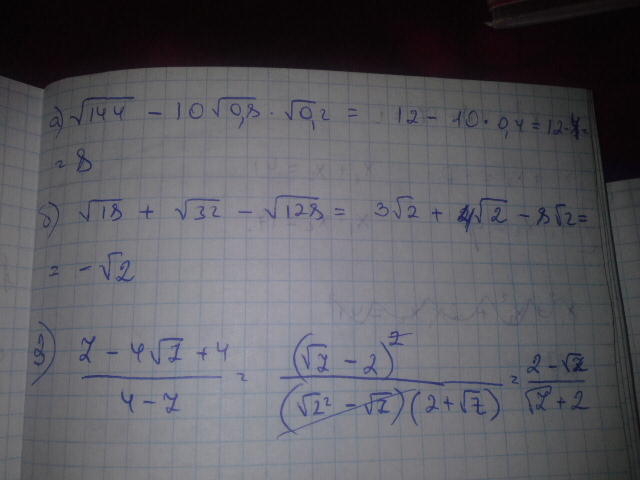 а) √144 - 10√0,8 · √0,2 = 12 - 10 · 0,4 = 12 - 4 =
= 8
б) √18 + √32 - √128 = 3√2 + 4√2 - 8√2 =
= -√2
в) (7 - 4√7 + 4)/(4 - 7) = (√7 - 2)²/((√2² - √7)(2 + √7)) = (2 - √7)/(√7 + 2)